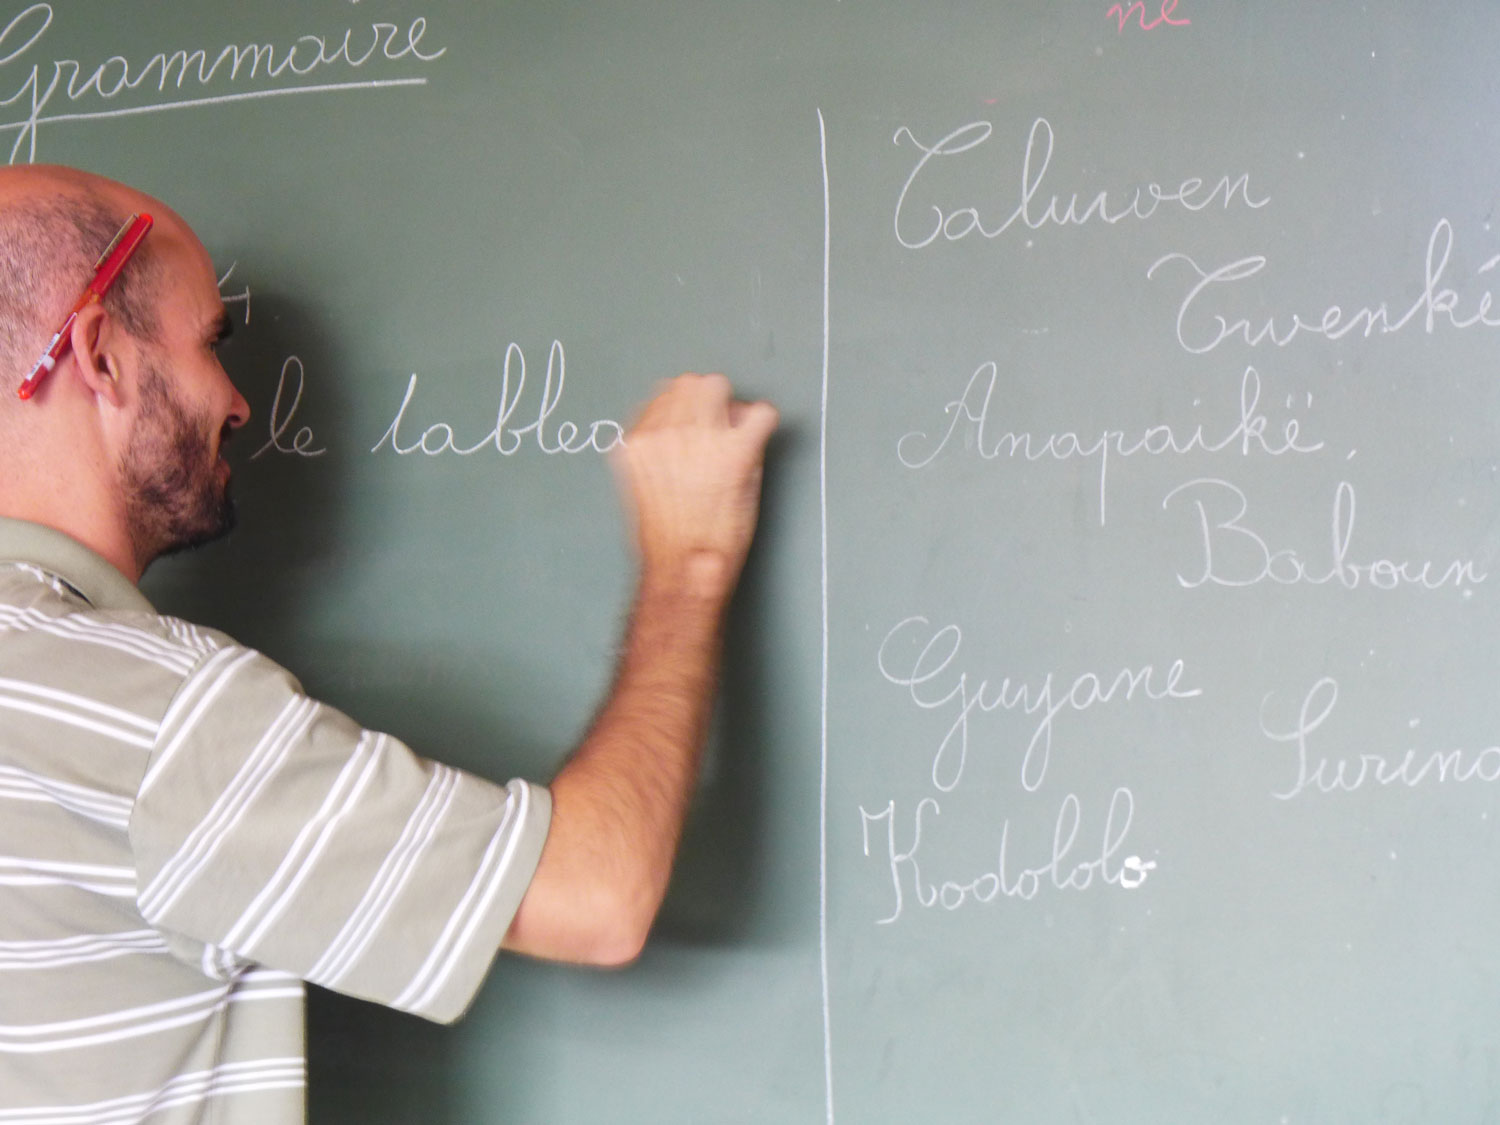 Grammaire
ne
4
le tablea
Taluwen
Twenké
Anapaikë,
Baboun
Guyane
Surina
Kodololo